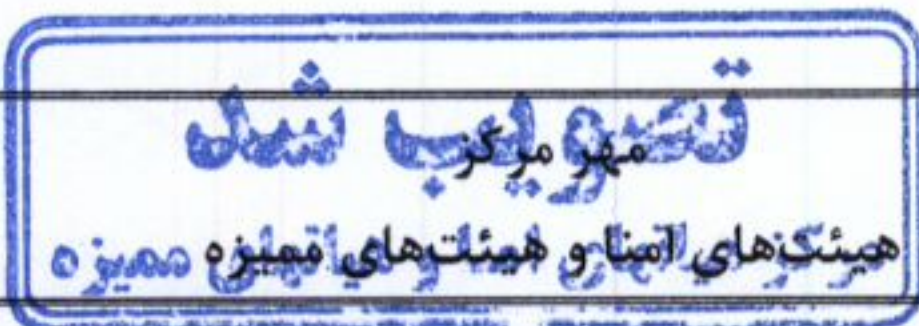 تصویب شد
مهر مرکز
هیئت‌های امنا و هیئت‌های ممیزه
ممیزه